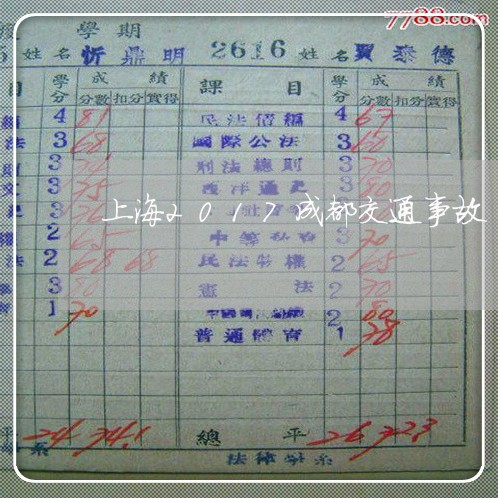 7788.com
學期
姓名 忻鼎明 2616 姓名 賈泰德
目 學分 成績 課目 學分 成績
分數 扣分 實得 分數 扣分 實得
4 81 民法債編 4 67
法 3 68 國際公法 3 60
3 刑法總則 3 70
3 75 西洋通史 3 80
上海2017成都交通事故
2 65 3 70
法 2 68 68 民法物權 2 65
3 80 憲法 2 70
1 70 2 80
普通體育 1 78
平 24 74.1 總平 26 72.3
系 法律學系